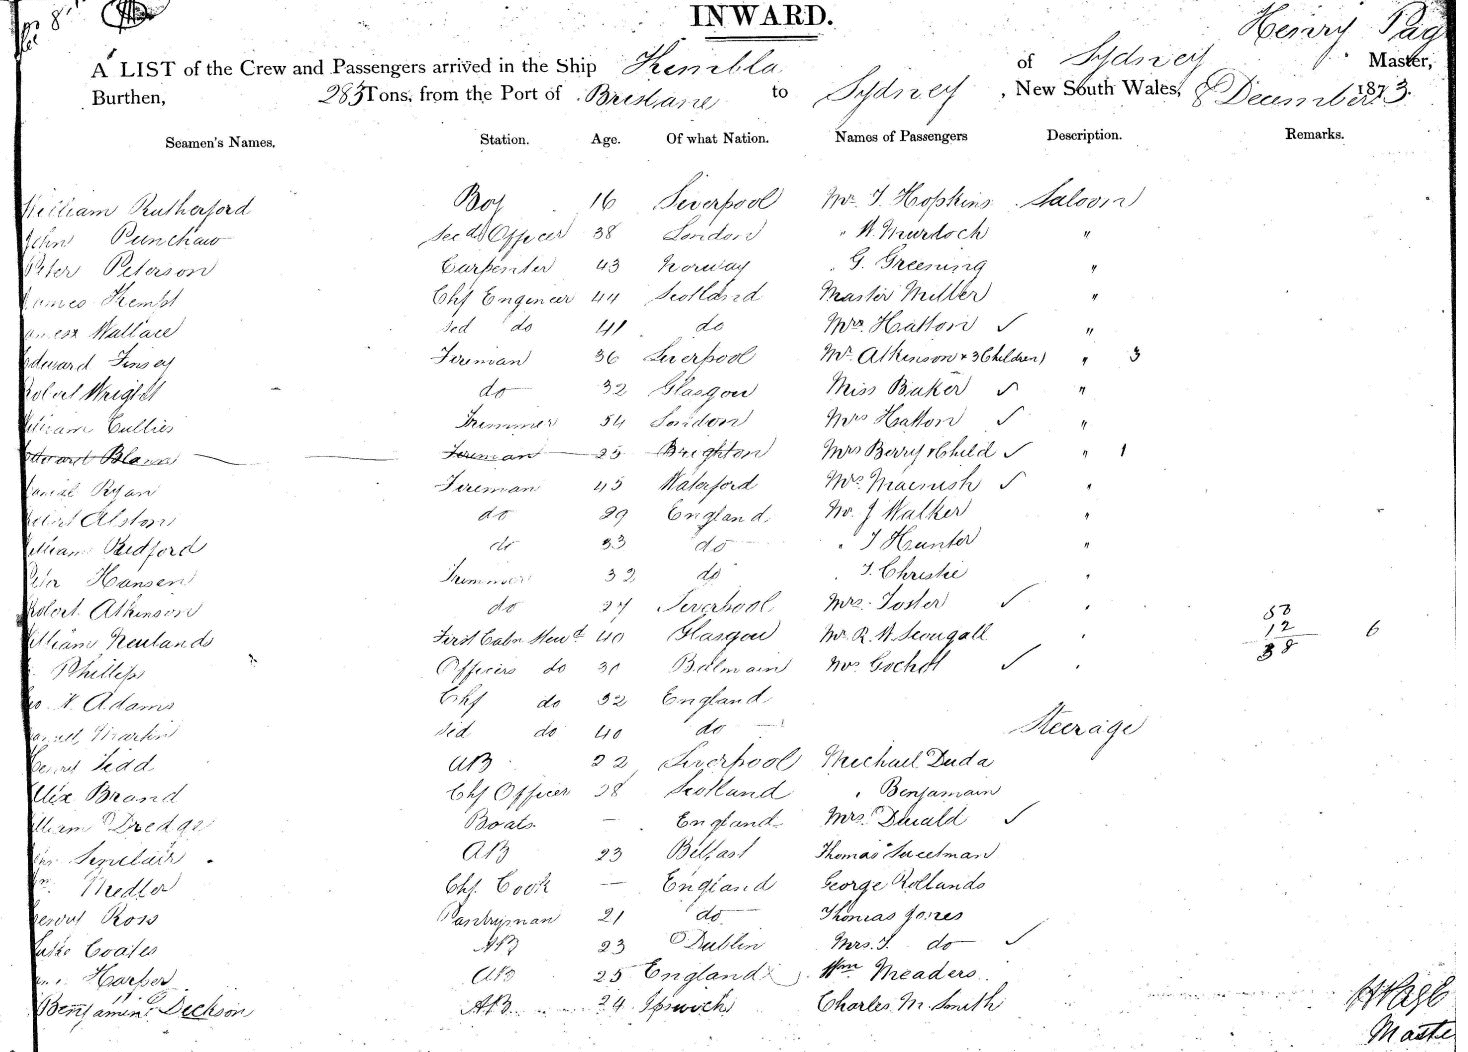 INWARD.
Henry Pag
A LIST of the Crew and Passengers arrived in the Ship Kembla of Sydney Master,
Burthen, 283 Tons, from the Port of Brisbane to Sydney, New South Wales, 8 December 1873.
Seamen's Names, Station. Age. Of what Nation. Names of Passengers Description. Remarks.
William Rutherford Boy 16 Liverpool Mr. T. Hopkins Saloon
John Punchaw Secd Officer 38 London " W. Murdoch "
Peter Peterson Carpenter 43 Norway " G. Greening "
James Kempt Chf Engineer 44 Scotland Master Miller "
Wallace Sed do 41 do Mrs. Hatton ✓ "
Edward Finsey Fireman 36 Liverpool Mr. Atkinson + 3 Children) " 3
Robert Wright do 32 Glasgow Miss Baker ✓ "
William Cullies Trimmer 54 London Mrs Hatton ✓ "
Edward Bland Fireman 25 Brighton Mrs Berry + Child ✓ " 1
Daniel Ryan Fireman 45 Waterford Mrs. Macnish ✓ "
Alston do 29 England Mr. J Walker "
William Redford do 33 do " T Hunter "
Peter Hansen Trimmer 32 do " T. Christie "
Robert Atkinson do 27 Liverpool Mrs. Foster ✓ "
William Newlands First Cabn Stewd 40 Glasgow Mr. R. W. Scougall "
Phillips Officers do 30 Balmain Mrs Gochot ✓ "
50
12
38
6
Geo W. Adams Chf do 32 England
Martin Sed do 40 do Steerage
Henry Tidd AB 22 Liverpool Michael Duda
Alex Brand Chf Officer 28 Scotland " Benjamain
William Dredge Boats. — England Mrs. Dwald ✓
Sinclair AB 23 Belfast Thomas Sweetman
Wm. Medler Chf. Cook — England George Rollands
Henry Ross Pantryman 21 do Thomas Jones
Luke Coates AB 23 Dublin Mrs. T. do ✓
Harper AB 25 England Wm Meaders
Benjamin Dickson AB 24 Ipswich Charles M. Smith
H Page
Maste